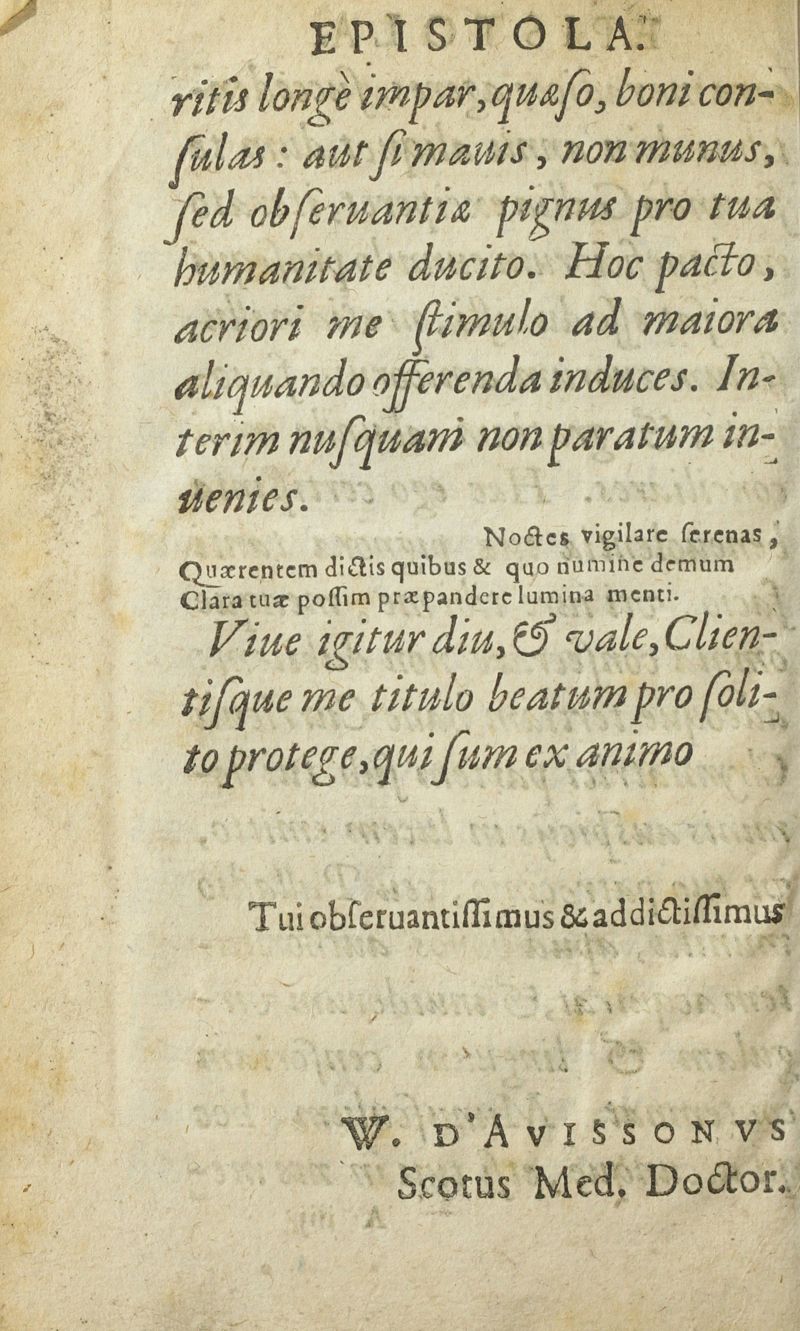 EPISTOLA.
ritis longè impar, quæſo, boni con-
ſulas : aut ſi mauis, non munus,
ſed obſeruantiæ pignus pro tua
humanitate ducito. Hoc pacto,
acriori me ſtimulo ad maiora
aliquando offerenda induces. In-
terim nuſquam non paratum in-
uenies.
Noctes vigilare ſerenas,
Quærentem dictis quibus & quo numine demum
Clara tuæ poſſim præpandere lumina menti.
Viue igitur diu, & vale, Clien-
tiſque me titulo beatum pro ſoli-
to protege, qui ſum ex animo
Tui obſeruantiſſimus & addictiſſimus
W. D'AVISSONVS
Scotus Med. Doctor.